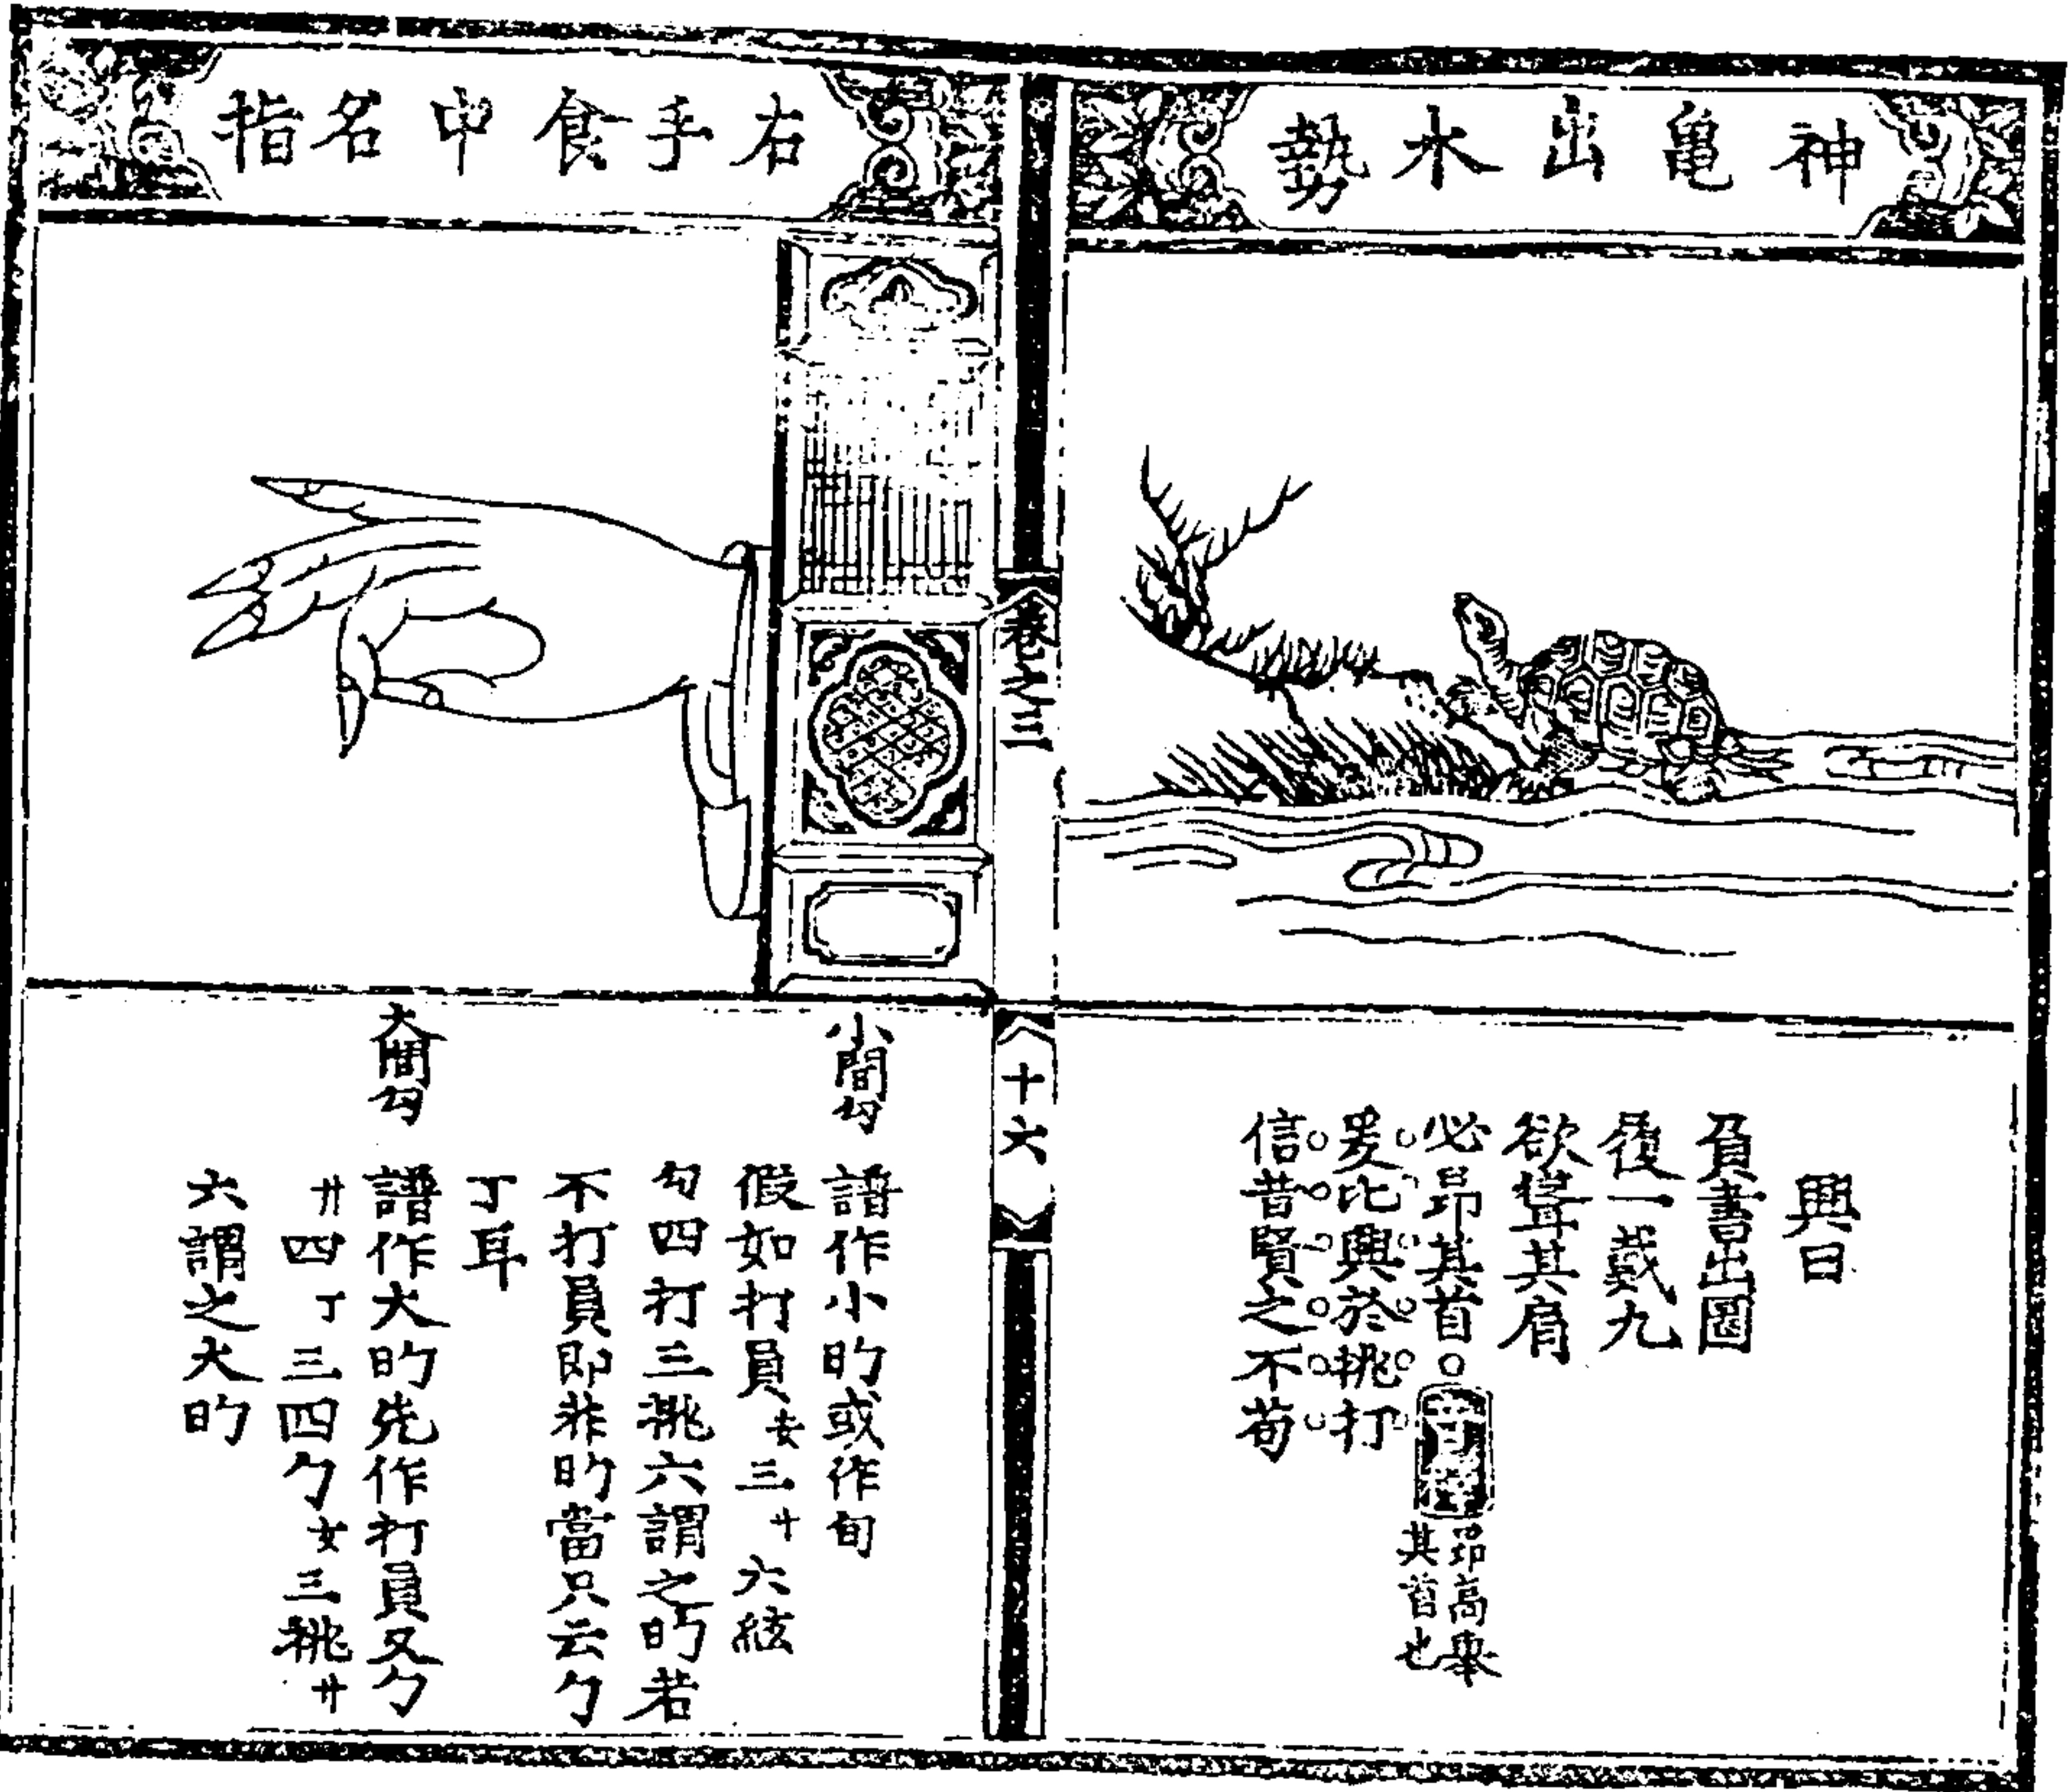 神亀出水勢
興曰
負書出圖
履一戴九
欲聳其肩
必昂其首○
昂高舉
其首也
爰比興於挑打
信昔賢之不苟
卷之三
十六
右手食中名指
小間勾
譜作小㫝或作旬
假如打員 三 六絃
勾四打三挑六謂之㫝若
不打員即非㫝當只云勹
丁耳
大間勾
譜作大㫝先作打員又勹
廾四丁三四勹 三挑廾
六謂之大㫝